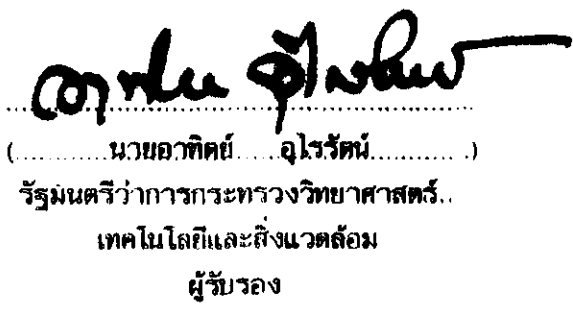 (............นายอาทิตย์......อุไรรัตน์.............)
รัฐมนตรีว่าการกระทรวงวิทยาศาสตร์..
เทคโนโลยีและสิ่งแวดล้อม
ผู้รับรอง